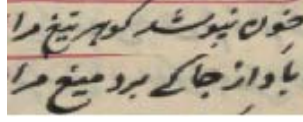 خون نپوشد کوهر تیغ مرا
باد از جا کے برد میغ مرا